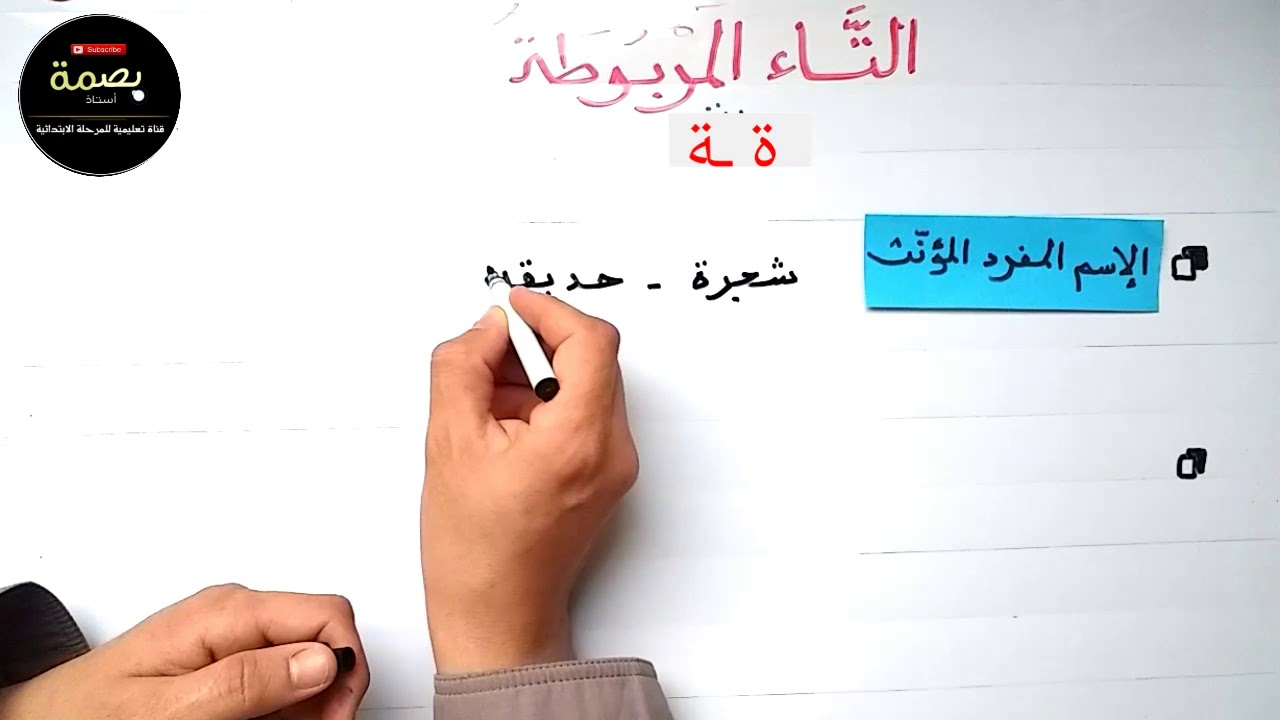 التَّاء المَرْبُوَطَة
ة ـة
الإسم المفرد المؤنّث
شجرة - حديقة
Subscribe
بصمة
أستاذ
قناة تعليمية للمرحلة الابتدائية